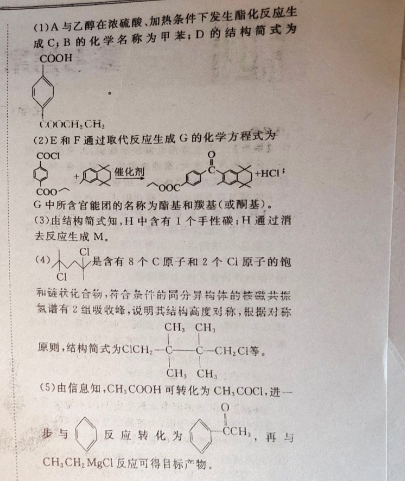 (1)A与乙醇在浓硫酸、加热条件下发生酯化反应生
成C;B的化学名称为甲苯;D的结构简式为
COOH
COOCH₂CH₃
(2)E和F通过取代反应生成G的化学方程式为
COCl
COO
+
催化剂
O
C
OOC
+HCl;
G中所含官能团的名称为酯基和羰基(或酮基)。
(3)由结构简式知,H中含有1个手性碳;H通过消
去反应生成M。
(4)
Cl
Cl
是含有8个C原子和2个Cl原子的饱
和链状化合物,符合条件的同分异构体的核磁共振
氢谱有2组吸收峰,说明其结构高度对称,根据对称
CH₃ CH₃
原则,结构简式为ClCH₂—C——C—CH₂Cl等。
CH₃ CH₃
(5)由信息知,CH₃COOH可转化为CH₃COCl,进一
O
步与 反应转化为 CCH₃,再与
CH₃CH₂MgCl反应可得目标产物。